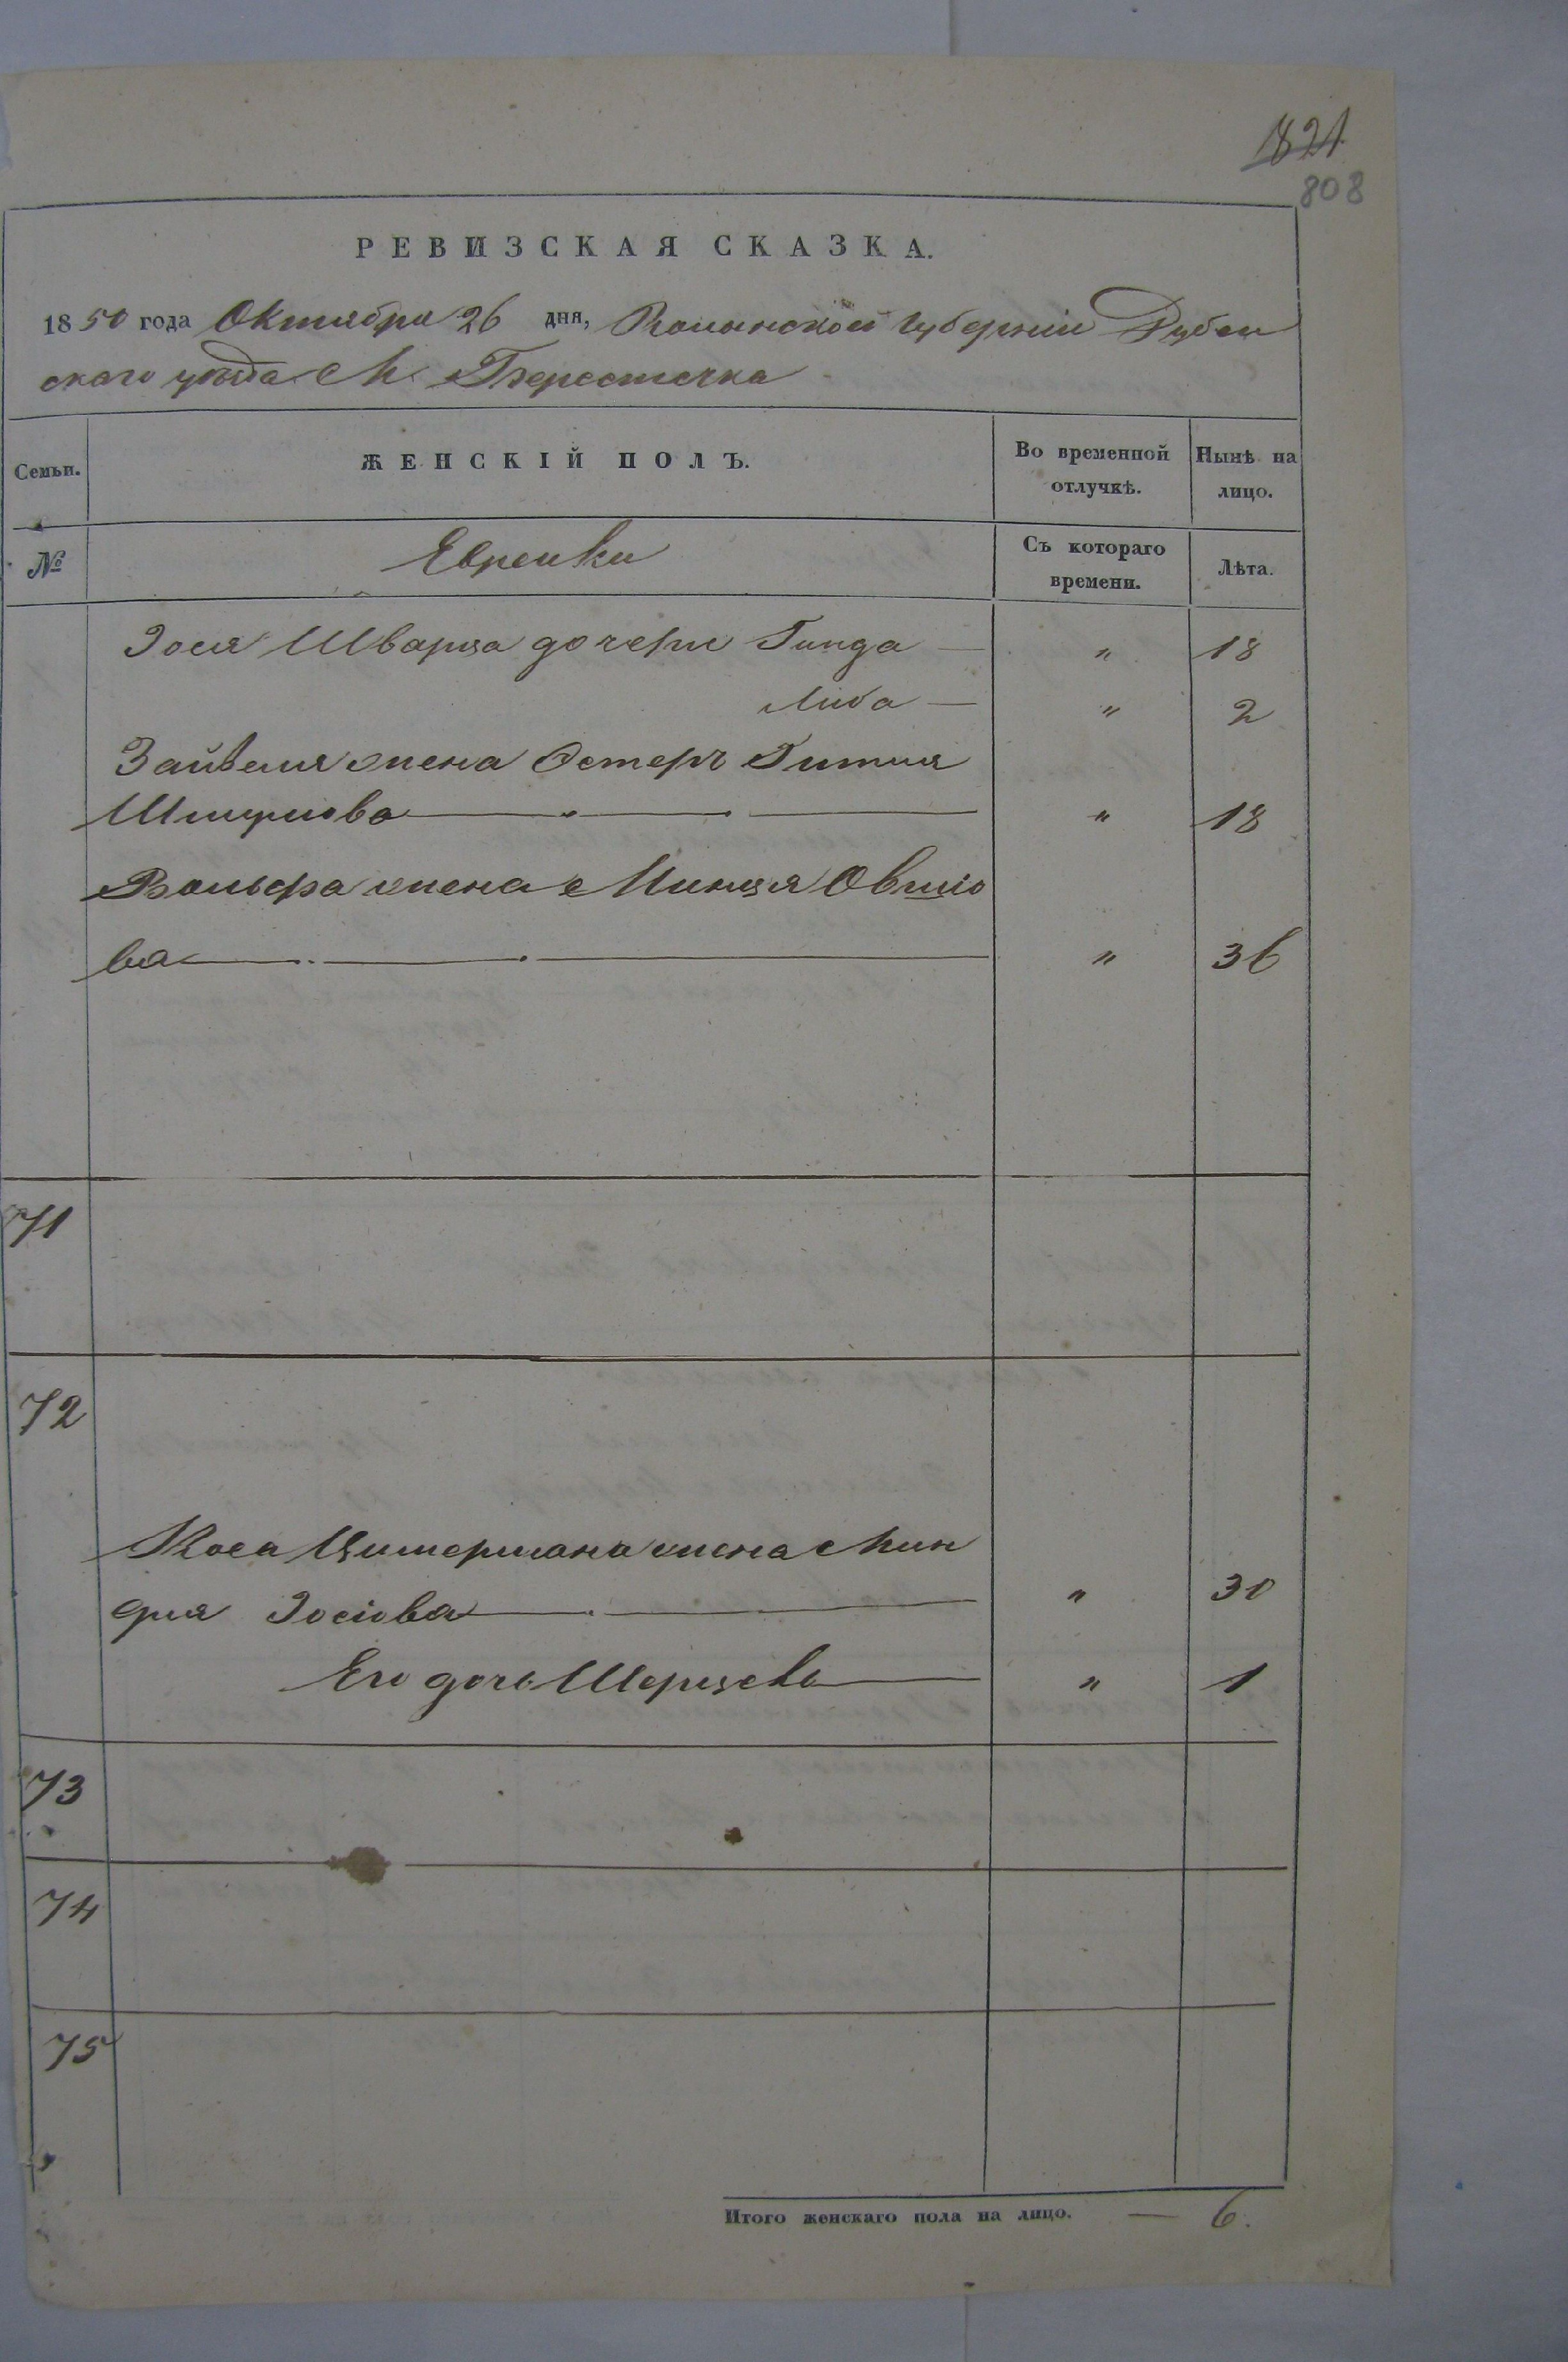 1821
808
РЕВИЗСКАЯ СКАЗКА.
1850 года Октября 26 дня, Волынской губерніи Дубен
скаго уѣзда М. Берестечка
Семьи. ЖЕНСКІЙ ПОЛЪ. Во временной отлучкѣ. Нынѣ на лицо.
№ Еврейки Съ котораго времени. Лѣта.
Зося Шварца дочери Гинда — " 18
Либа — " 2
Зайвеля жена Эстеръ Гитля
Шмулова " 18
Вольфа жена Минця Овшіо
ва " 36
71
72
Цимермана жена Мин
для Іосіова " 30
Его дочь " 1
73
74
75
Итого женскаго пола на лицо. — 6.